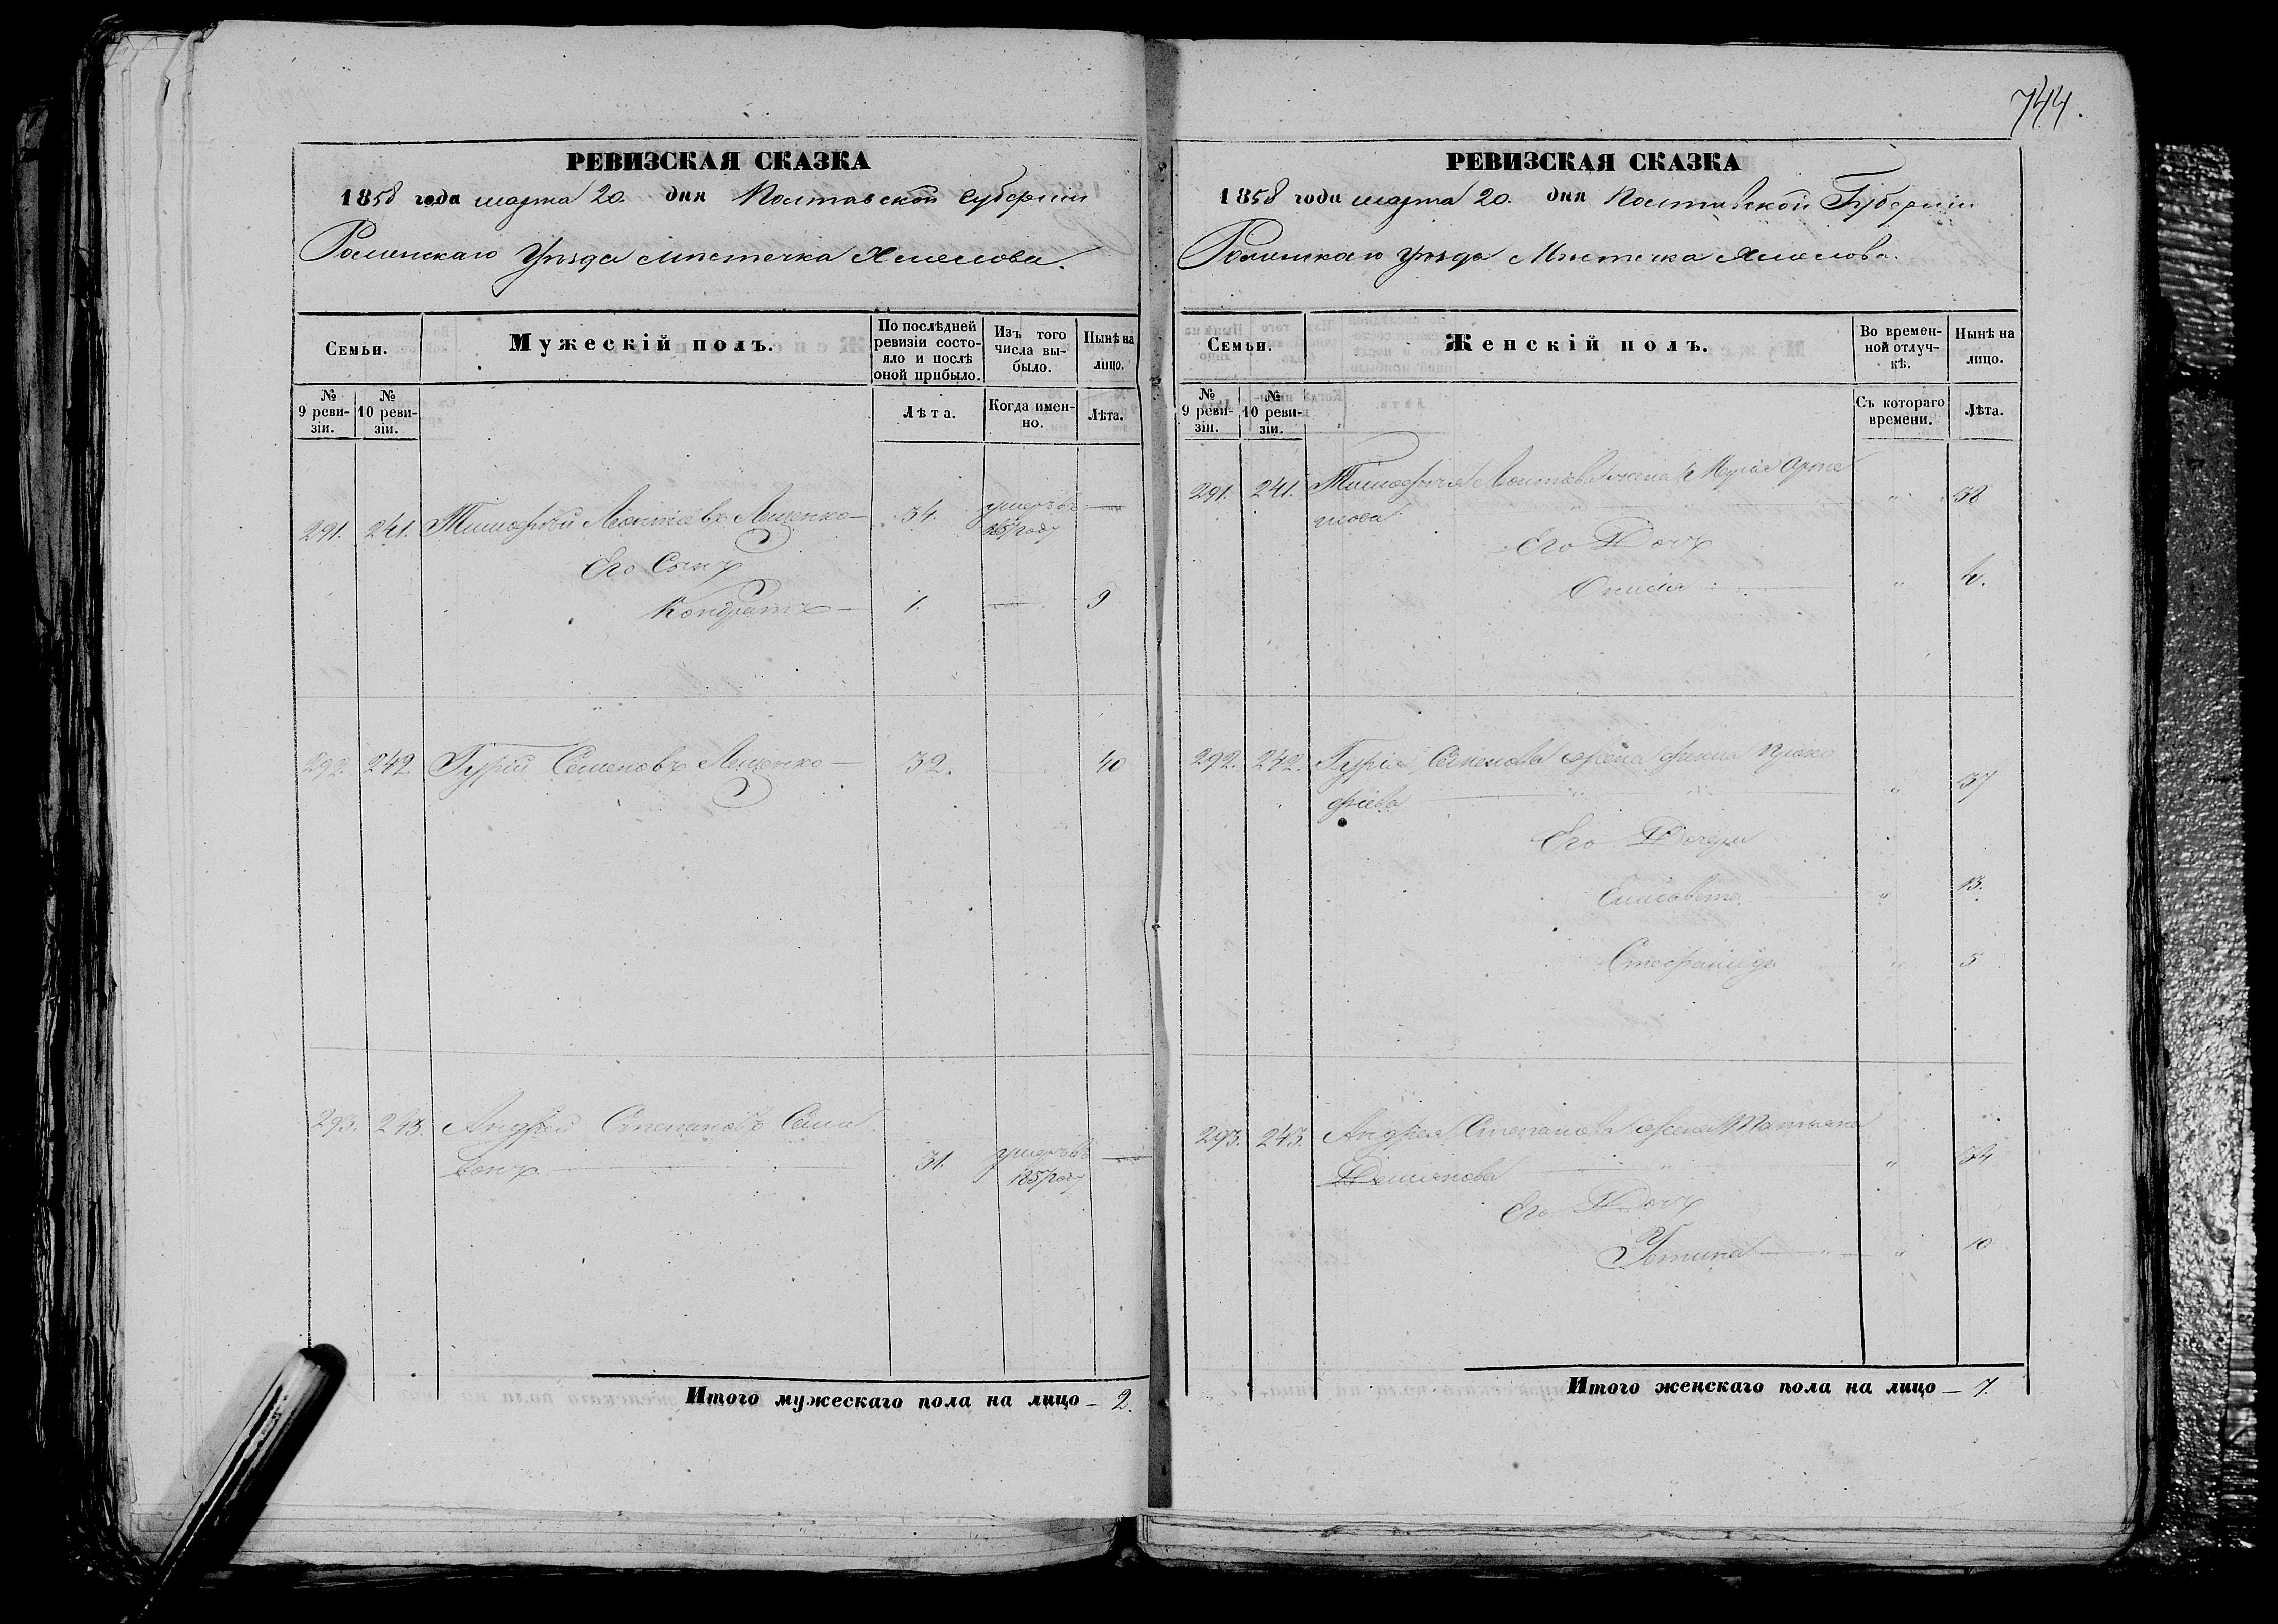 РЕВИЗСКАЯ СКАЗКА
1858 года марта 20. дня Полтавской Губернии
Роменскаго Уѣзда Мѣстечка Хмелова.
Семьи.
Мужескій полъ.
По послѣдней ревизіи состояло и послѣ оной прибыло.
Изъ того числа выбыло.
Нынѣ на лицо.
№ 9 ревизіи.
№ 10 ревизіи.
Лѣта.
Когда именно.
Лѣта.
291. 241. Тимофѣй Леонтіевъ Лещенко — 34. умеръ въ —
1857 году
Его Сынъ
Кондратъ — 1. — 9
292. 242. Гурій Семеновъ Лещенко — 32. 40
293. 243. Андрей Степановъ Сама
вонъ 31. умеръ въ —
1857 году
Итого мужескаго пола на лицо — 2.
744.
РЕВИЗСКАЯ СКАЗКА
1858 года марта 20. дня Полтавской Губерніи
Роменскаго Уѣзда Мѣстечка Хмелова.
Семьи.
Женскій полъ.
Во временной отлучкѣ.
Нынѣ на лицо.
№ 9 ревизіи.
№ 10 ревизіи.
Съ котораго времени.
Лѣта.
291. 241. Тимофѣя Леонтіева жена Марія Арте
мова " 38
Его Дочь
Онисія " 4.
292. 242. Гурія Семенова жена Проко
фіева " 37
Его Дочери
Елисавета " 13.
Стефанида " 5
293. 243. Андрея Степанова жена Татьяна
Демянова " 34
Его Дочь
Устина " 10
Итого женскаго пола на лицо — 7.